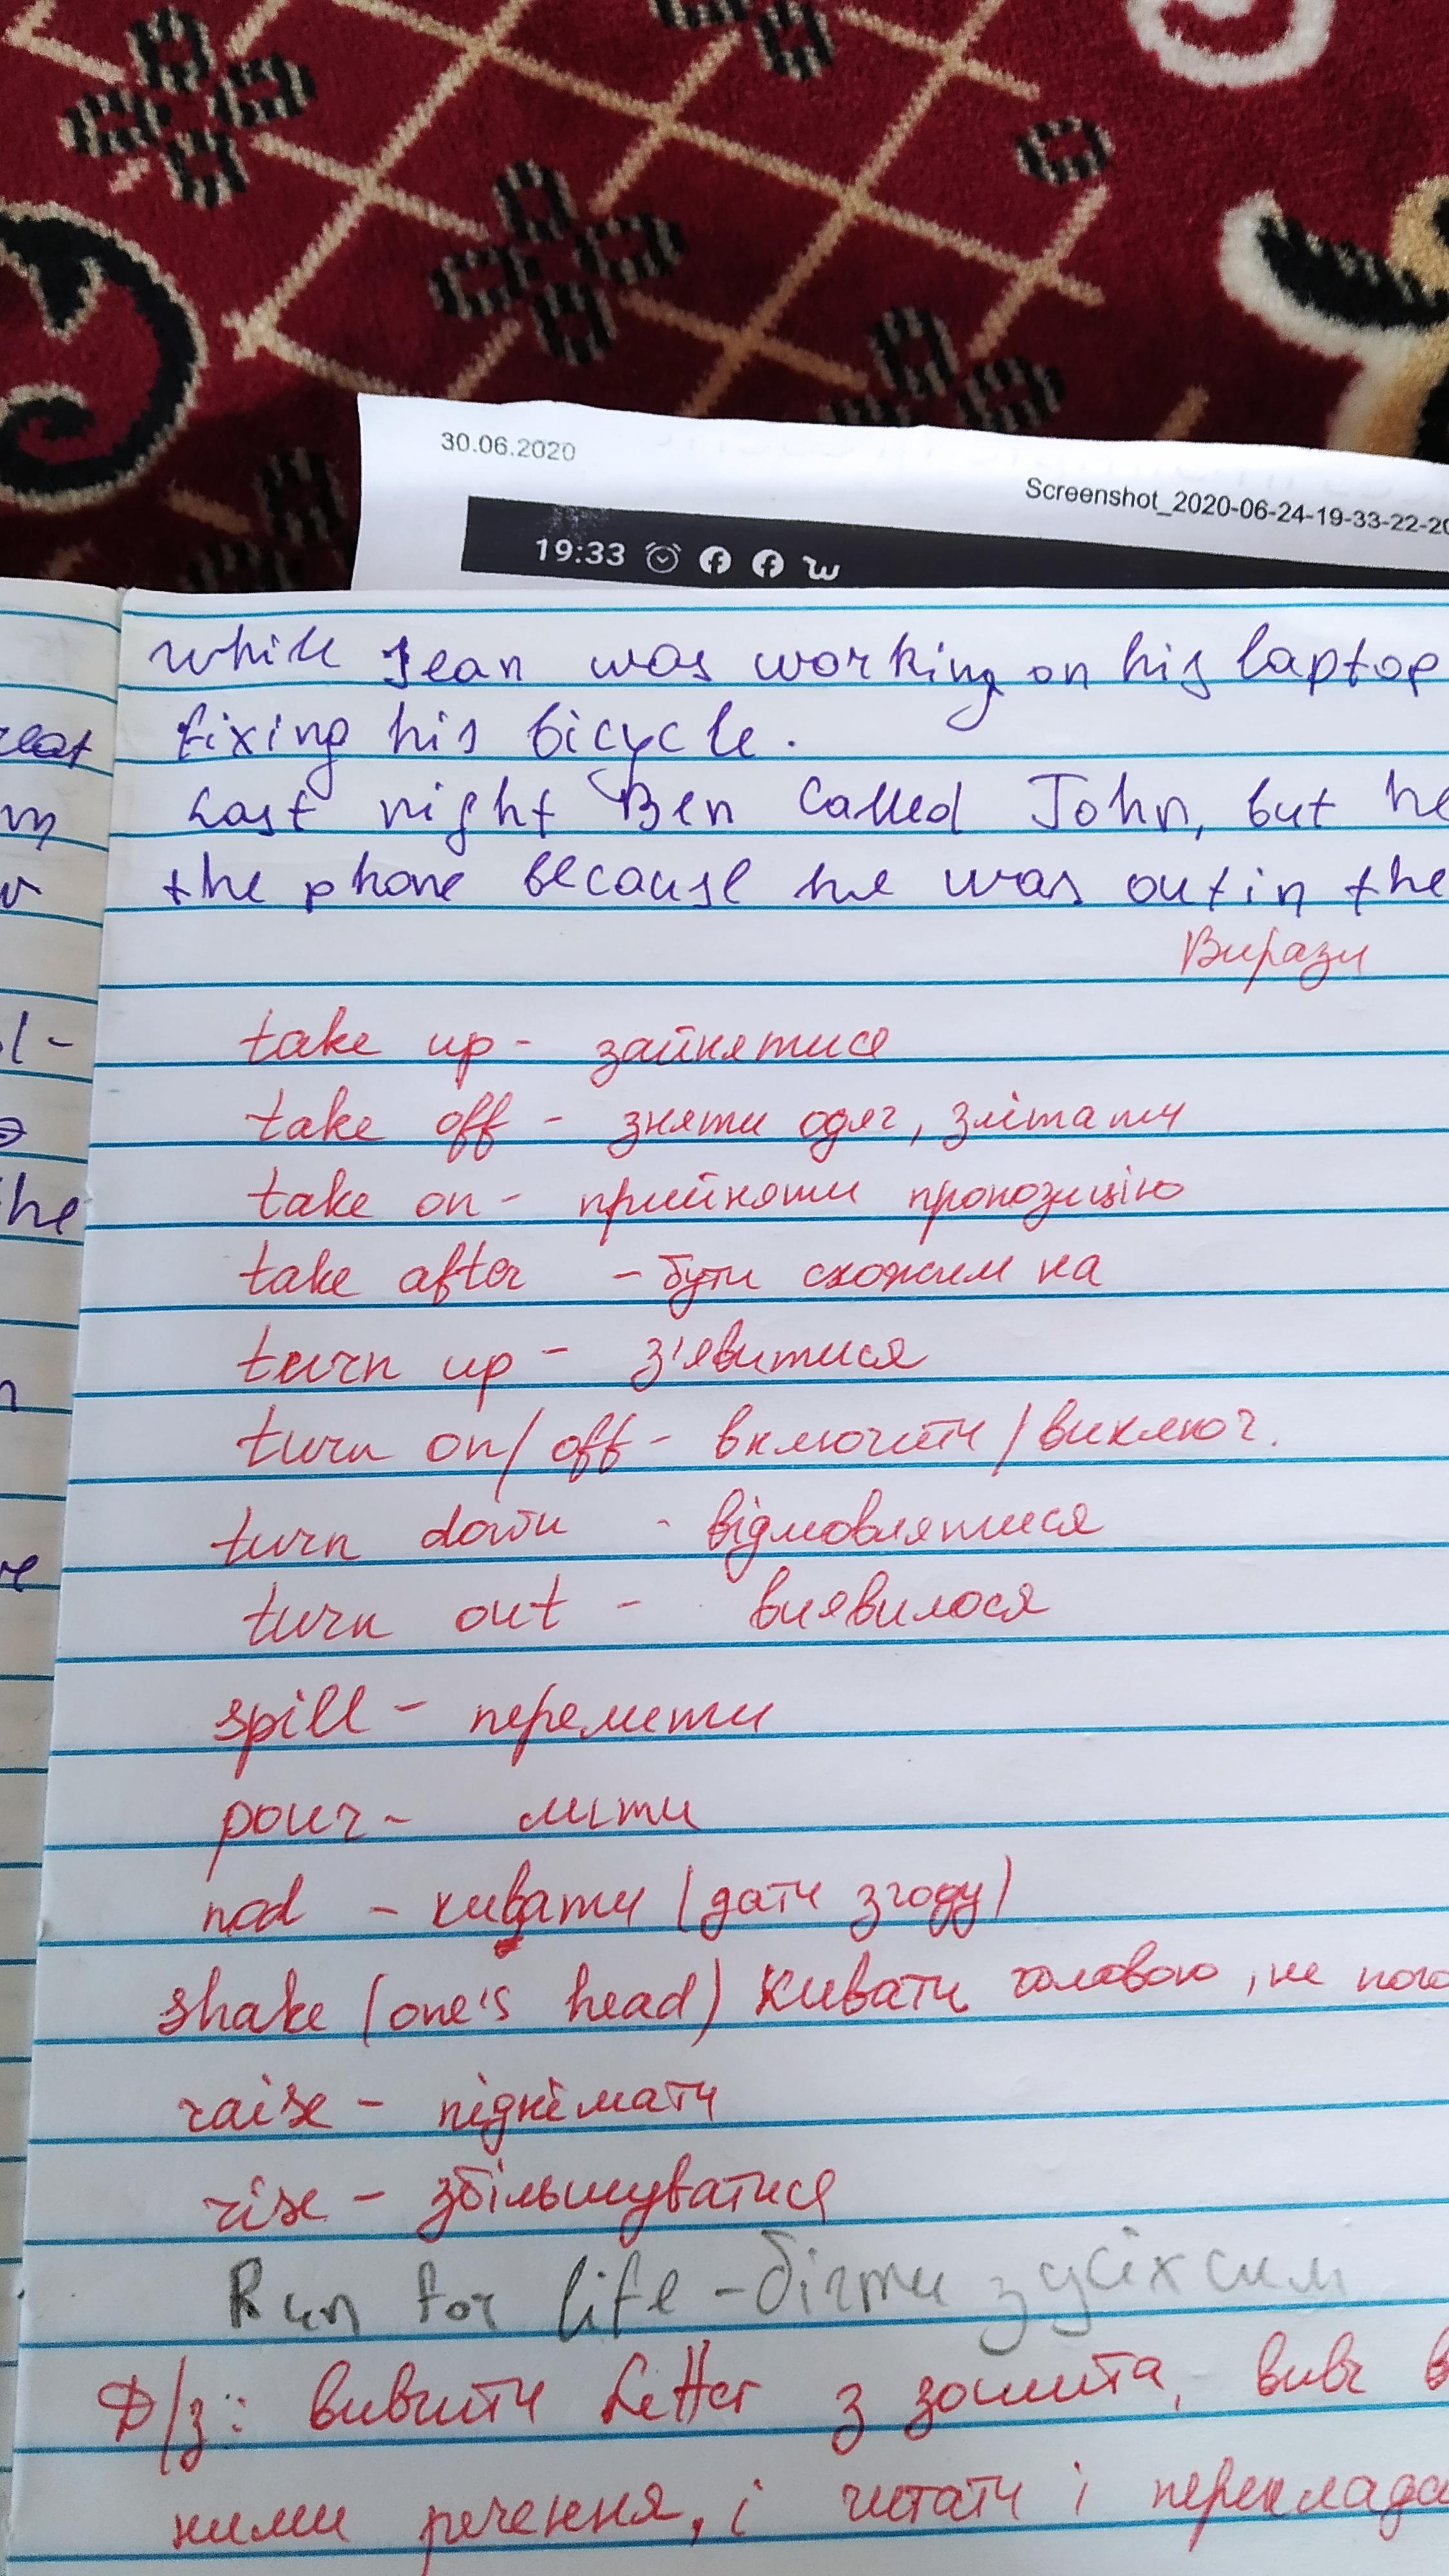 30.06.2020
Screenshot_2020-06-24-19-33-22-20
19:33
while Jean was working on his laptop
fixing his bicycle.
Last night Ben called John, but he
the phone because he was out in the
Вирази
take up - зайнятися
take off - зняти одяг, злітати
take on - прийняти пропозицію
take after - бути схожим на
turn up - з'явитися
turn on/off - включити/виключ.
turn down - відмовлятися
turn out - виявилося
spill - перелити
pour - лити
nod - кивати (дати згоду)
shake (one's head) кивати головою, не пого
raise - піднімати
rise - збільшуватися
Run for life - бігти з усіх сил
Д/з: вивчити Letter з зошита, вивч в
ними речення, і читати і переклада